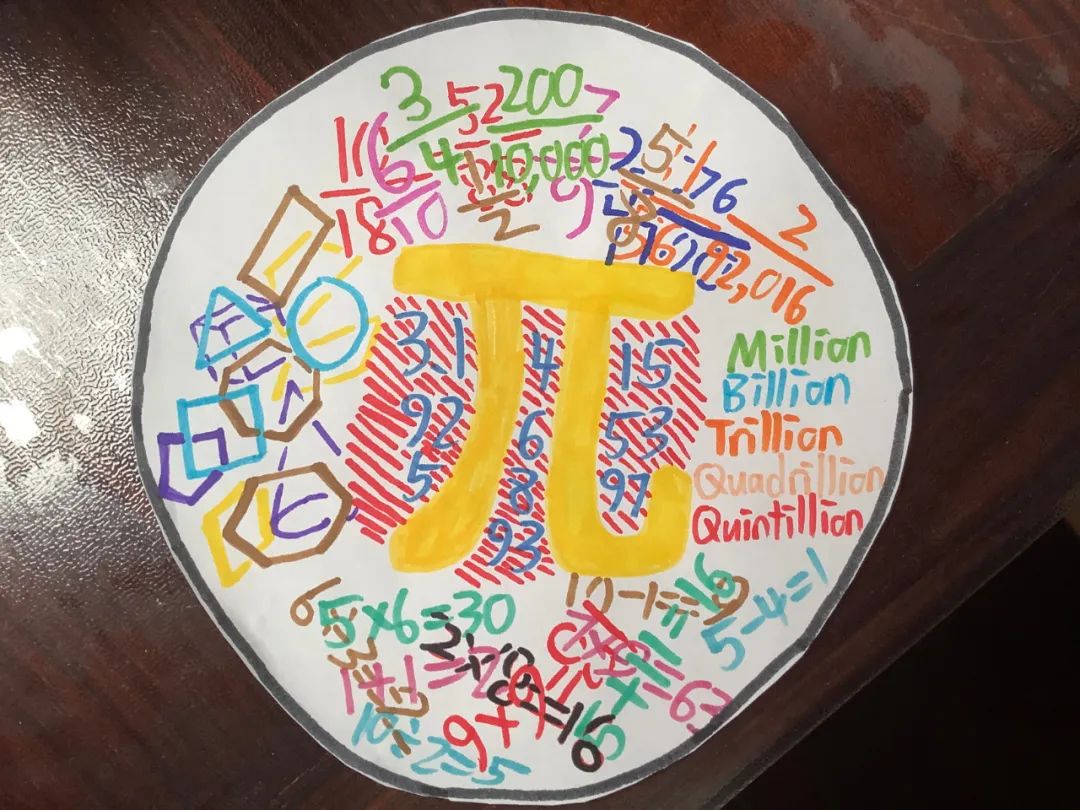 3/4
52
200/10,000
7
16/18
6/10
1/2
9
5/8
176
2/92,016
π
3.1 4 15
92 6 53
5 8 97
93
Million
Billion
Trillion
Quadrillion
Quintillion
5×6=30
10-1=9
5-4=1
1+1=2
2×8=16
7×9=63
5+11=16
10÷2=5